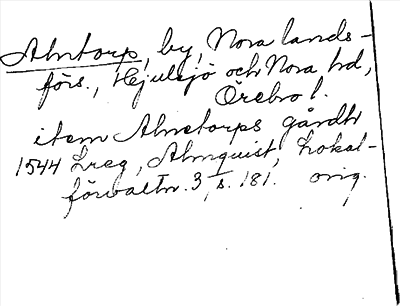 Alntorp, by, Nora lands-
förs., Hjulsjö och Nora hd,
Örebro l.
item Alnetorps gårdh
1544 Lreg, Almquist, Lokal-
förvaltn. 3, s. 181. orig.